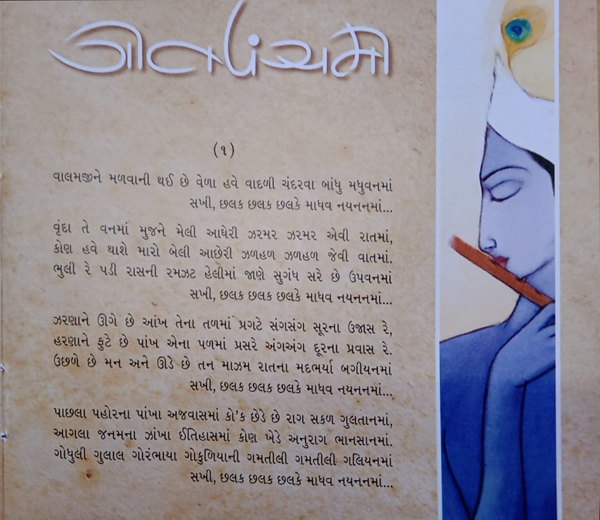 ગીતપંચમી
(૧)
વાલમજીને મળવાની થઈ છે વેળા હવે વાદળી ચંદરવા બાંધુ મધુવનમાં
સખી, છલક છલક છલકે માધવ નયનનમાં...
વૃંદા તે વનમાં મુજને મેલી આઘેરી ઝરમર ઝરમર એવી રાતમાં,
કોણ હવે થાશે મારો બેલી આછેરી ઝળહળ ઝળહળ જેવી વાતમાં.
ભુલી રે પડી રાસની રમઝટ હેલીમાં જાણે સુગંધ સરે છે ઉપવનમાં
સખી, છલક છલક છલકે માધવ નયનનમાં...
ઝરણાને ઊગે છે આંખ તેના તળમાં પ્રગટે સંગસંગ સૂરના ઉજાસ રે,
હરણાને ફુટે છે પાંખ એના પળમાં પ્રસરે અંગઅંગ દૂરના પ્રવાસ રે.
ઉછળે છે મન અને ઊડે છે તન માઝમ રાતના મદભર્યા બગીયનમાં
સખી, છલક છલક છલકે માધવ નયનનમાં...
પાછલા પહોરના પાંખા અજવાસમાં કો'ક છેડે છે રાગ સકળ ગુલતાનમાં,
આગલા જનમના ઝાંખા ઈતિહાસમાં કોણ ખેડે અનુરાગ ભાનસાનમાં.
ગોધુલી ગુલાલ ગોરંભાયા ગોકુળિયાની ગમતીલી ગમતીલી ગલિયનમાં
સખી, છલક છલક છલકે માધવ નયનનમાં...